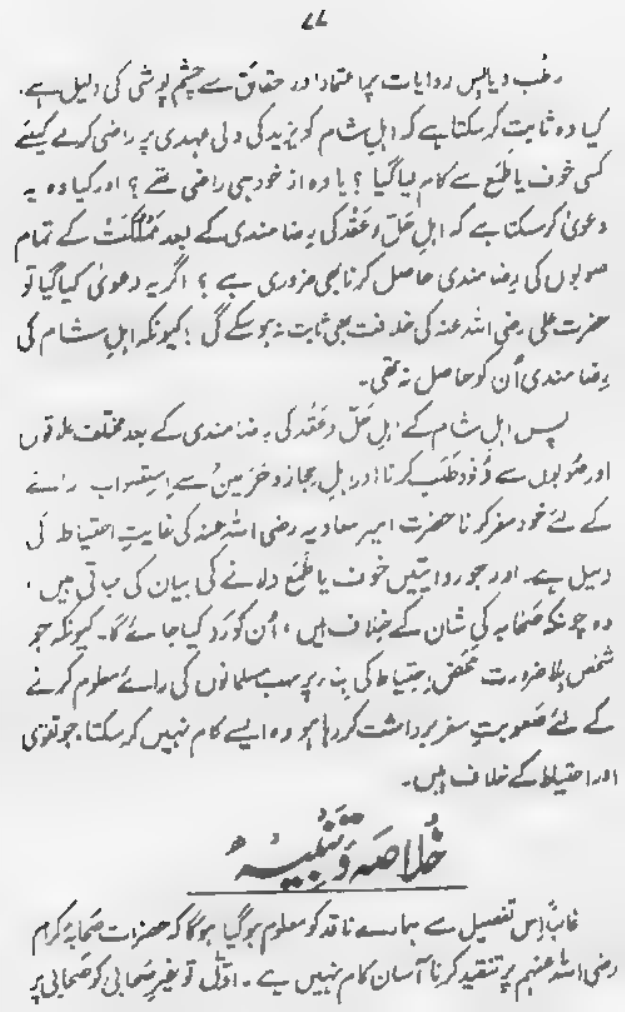 ۷۷
رطب و یابس روایات پر اعتماد اور حقائق سے چشم پوشی کی دلیل ہے.
کیا وہ ثابت کرسکتا ہے کہ اہلِ شام کو یزید کی ولی عہدی پر راضی کرنے کیلئے
کسی خوف یا طَمَع سے کام لیا گیا ؟ یا وہ از خود ہی راضی تھے ؟ اور کیا وہ یہ
دعویٰ کرسکتا ہے کہ اہلِ حَلّ و عَقْد کی رضا مندی کے بعد مَمْلُکَتْ کے تمام
صوبوں کی رِضا مندی حاصل کرنا بھی ضروری ہے ؟ اگر یہ دعویٰ کیا گیا تو
حضرت علی رضی اللہ عنہ کی خلافت بھی ثابت نہ ہو سکے گی ؛ کیونکہ اہلِ شام کی
رِضا مندی اُن کو حاصل نہ تھی۔
پس اہلِ شام کے اہلِ حَلّ و عَقْد کی رضا مندی کے بعد مختلف علاقوں
اور صُوبوں سے وُفُود طَلَب کرنا اور اہلِ حجاز و حَرَمینْ سے اِستِصواب رائے
کے لئے خود سفر کرنا حضرت امیر معاویہ رضی اللہ عنہ کی غایتِ احتیاط کی
دلیل ہے۔ اور جو روایتیں خوف یا طَمَع دلانے کی بیان کی جاتی ہیں ،
وہ چونکہ صَحَابہ کی شان کے خِلاف ہیں ، اُن کو رَد کیا جائے گا۔ کیونکہ جو
شخص بِلا ضرورت مَحْض اِحتِیاط کی بِناء پر سب مسلمانوں کی رائے معلوم کرنے
کے لئے صَعوبتِ سفر برداشت کر رہا ہو وہ ایسے کام نہیں کرسکتا، جو تقویٰ
اور احتیاط کے خلاف ہیں۔
خُلاصَہ وَ تَنْبِیہْ
غالباً اِس تفصیل سے ہمارے ناقد کو معلوم ہوگیا ہوگا کہ حضرات صَحَابۂ کرام
رضی اللہ عنہم پر تنقید کرنا آسان کام نہیں ہے ۔ اوّل تو غیرِ صَحابی کو صَحابی پر